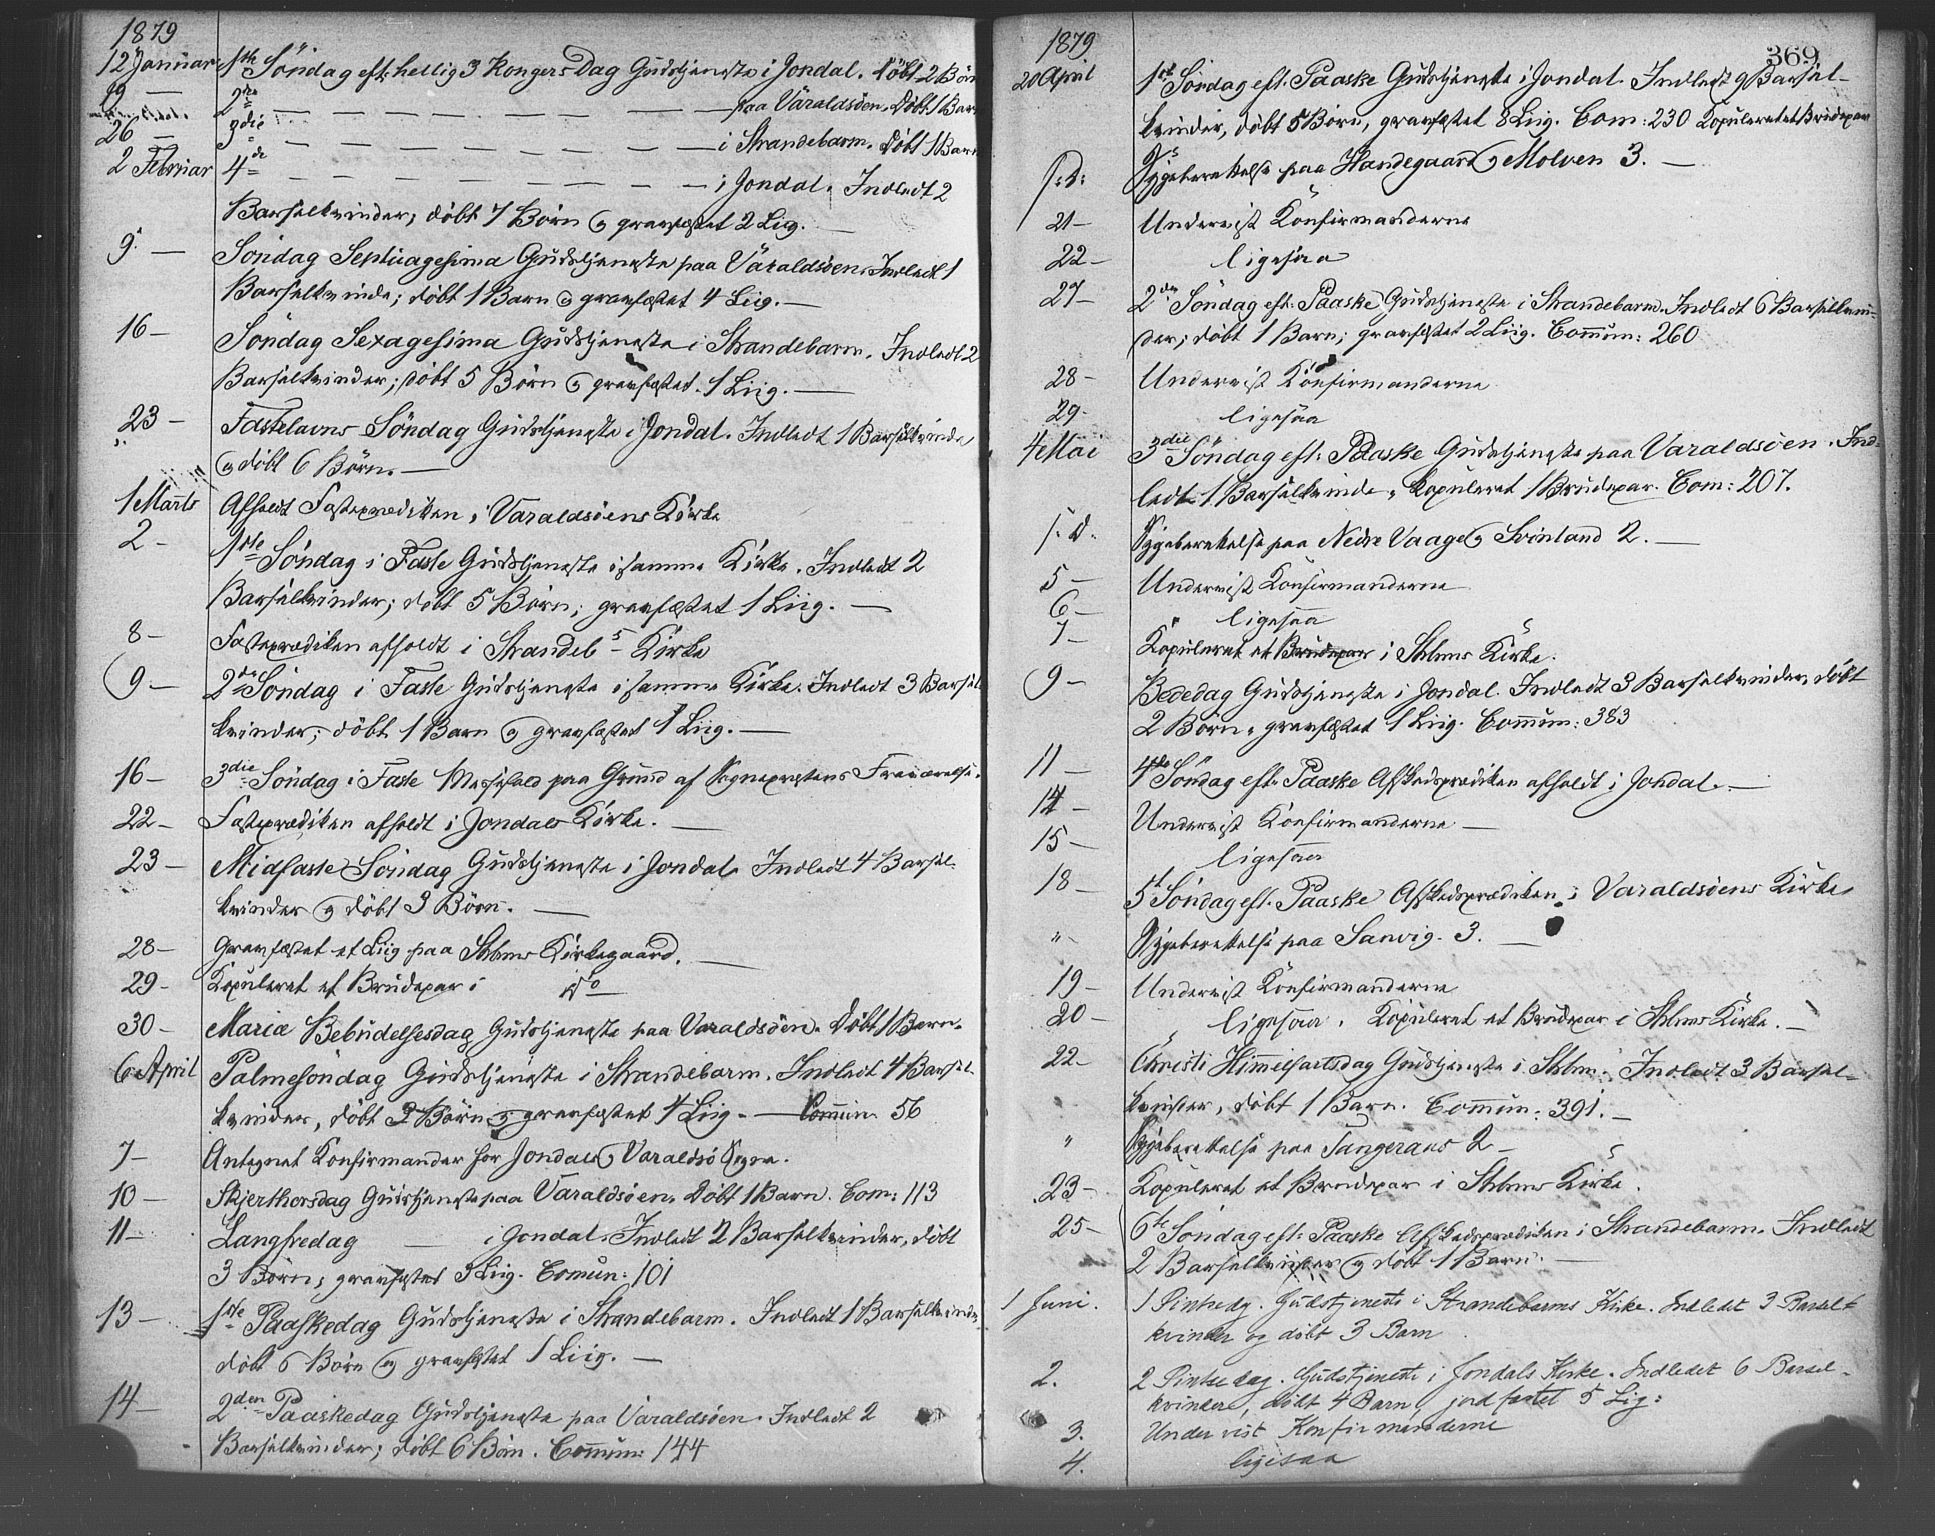 1879
12 Januar 1ste Söndag eft. hellig 3 Kongers Dag Gudstjeneste i Jondal. Döbt 2 Börn
19 — 2den — — — — — — paa Varaldsöen. Döbt 1 Barn
26 — 3die — — — — — — i Strandebarm. Döbt 1 Barn
2 Februar 4de — — — — — — i Jondal. Indledt 2
Barselkvinder; döbt 7 Börn og gravfæstet 2 Liig.
9 — Söndag Septuagesima Gudstjeneste paa Varaldsöen. Indledt 1
Barselkvinde; döbt 1 Barn og gravfæstet 4 Liig. —
16 — Söndag Sexagesima Gudstjeneste i Strandebarm. Indledt 2
Barselkvinder; döbt 5 Börn og gravfæstet 1 Liig. —
23 — Fastelavns Söndag Gudstjeneste i Jondal. Indledt 1 Barselkvinde
og döbt 6 Börn. —
1 Marts Afholdt Fasteprædiken i Varaldsöens Kirke
2 — 1ste Söndag i Faste Gudstjeneste i samme Kirke. Indledt 2
Barselkvinder; döbt 5 Börn; gravfæstet 1 Liig. —
8 — Fasteprædiken afholdt i Strandebs Kirke
9 — 2den Söndag i Faste Gudstjeneste i samme Kirke. Indledt 3 Barsel-
kvinder; döbt 1 Barn og gravfæstet 1 Liig. —
16 — 3die Söndag i Faste Messefald paa Grund af Sognepræstens Fraværelse.
22 — Fasteprædiken afholdt i Jondals Kirke. —
23 — Midfaste Söndag Gudstjeneste i Jondal. Indledt 4 Barsel-
kvinder og döbt 3 Börn. —
28 — Gravfæstet et Liig paa Stbms Kirkegaard. —
29 — Kopuleret et Brudepar i do —
30 — Mariæ Bebudelsesdag Gudstjeneste paa Varaldsöen. Döbt 1 Barn.
6 April Palmesöndag Gudstjeneste i Strandebarm. Indledt 4 Barsel-
kvinder, döbt 2 Börn og gravfæstet 4 Liig. — Commun. 56
7 — Antegnet Konfirmander for Jondals og Varaldsö Sogne.
10 — Skjerthorsdag Gudstjeneste paa Varaldsöen. Döbt 1 Barn. Com: 113
11 — Langfredag — i Jondal. Indledt 2 Barselkvinder, döbt
3 Börn; gravfæstet 5 Liig. Comun: 101
13 — 1ste Paaskedag Gudstjeneste i Strandebarm. Indledt 1 Barselkvinde
döbt 6 Börn og gravfæstet 1 Liig. —
14 — 2den Paaskedag Gudstjeneste paa Varaldsöen. Indledt 2
Barselkvinder; döbt 6 Börn. Commun: 144
1879
369
20 April 1ste Söndag eft. Paaske Gudstjeneste i Jondal. Indledt 9 Barsel-
kvinder, döbt 5 Börn, gravfæstet 8 Liig. Com: 230 Kopuleret et Brudepar
s: d: Sygeberettelse paa Handegaard og Molven 3. —
21 — Undervist Konfirmanderne
22 — ligesaa
27 — 2den Söndag eft: Paaske Gudstjeneste i Strandebarm. Indledt 6 Barselkvin-
der; döbt 1 Barn; gravfæstet 2 Liig. Commun: 260
28 — Undervist Konfirmanderne
29 - ligesaa
4 Mai 3die Söndag eft: Paaske Gudstjeneste paa Varaldsöen. Ind-
ledt 1 Barselkvinde. Kopuleret 1 Brudepar. Com: 207.
s. d. Sygeberettelse paa Nedre Vaage og Svinland 2. —
5 — Undervist Konfirmanderne
6 — ligesaa
7 — Kopuleret et Brudepar i Stbms Kirke.
9 — Bededag Gudstjeneste i Jondal. Indledt 3 Barselkvinder, döbt
2 Börn, gravfæstet 1 Liig. Commun: 383
11 — 4de Söndag eft. Paaske Afskedsprædiken afholdt i Jondal. —
14 — Undervist Konfirmanderne —
15 — ligesaa
18 — 5te Söndag eft. Paaske Afskedsprædiken i Varaldsöens Kirke
" Sygeberettelse paa Sanvig. 3. —
19 — Undervist Konfirmanderne
20 — ligesaa. Kopuleret et Brudepar i Stbms Kirke. —
22 - Christi Himmelfartsdag Gudstjeneste i Stbm. Indledt 3 Barsel-
kvinder, döbt 1 Barn. Commun: 391. —
" Sygeberettelse paa Tangeraas 2 —
23 — Kopuleret et Brudepar i Stbms Kirke.
25 — 6te Söndag eft: Paaske Afskedsprædiken i Strandebarm. Indledt
2 Barselkvinder og döbt 1 Barn. —
1 Juni. 1 Pintsedg. Gudstjeneste i Strandebarms Kirke. Indledet 3 Barsel-
kvinder og döbt 3 Barn
2. 2 Pintsedag. Gudstjeneste i Jondals Kirke. Indledet 6 Barsel-
kvinder, döbt 4 Barn, jordfæstet 5 Lig:
3. Undervist Konfirmanderne
4. ligesaa